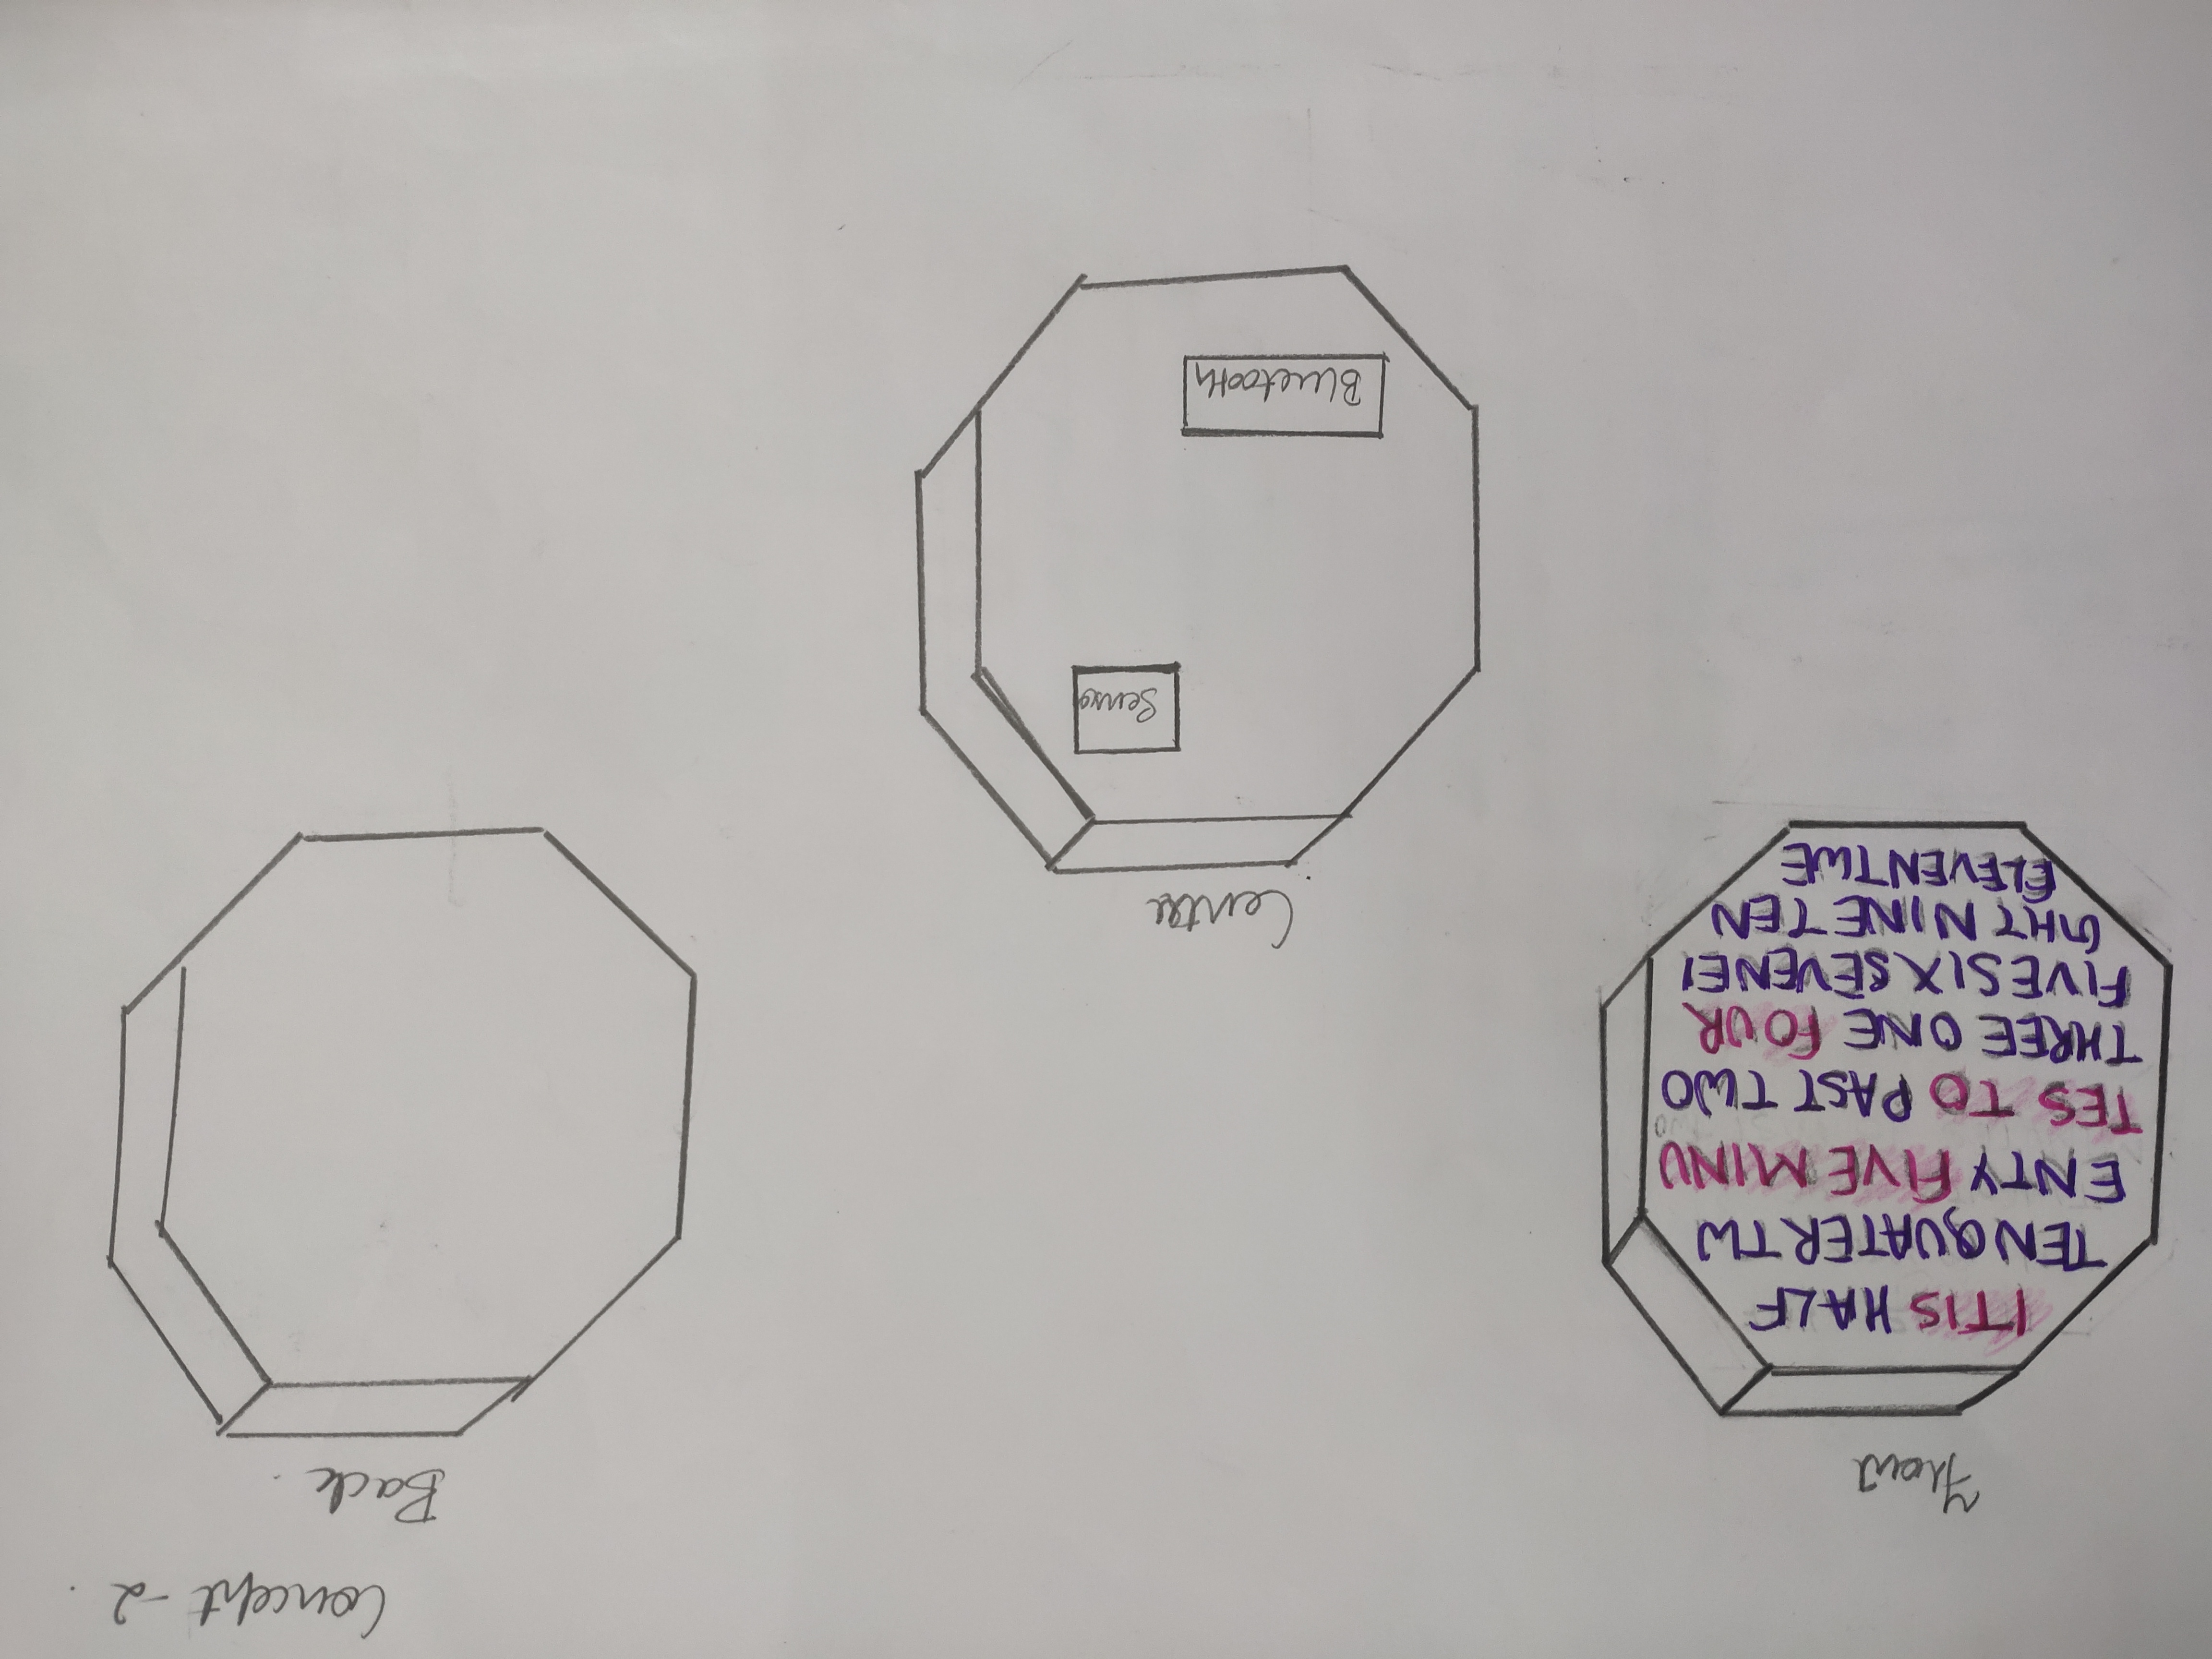 Concept -2.
Front
ITIS HALF
TENQUATERTW
ENTY FIVE MINU
TES TO PAST TWO
THREE ONE FOUR
FIVESIXSEVENEI
GHT NINETEN
ELEVENTWE
Back.
Centre
Senso
Bluetooth